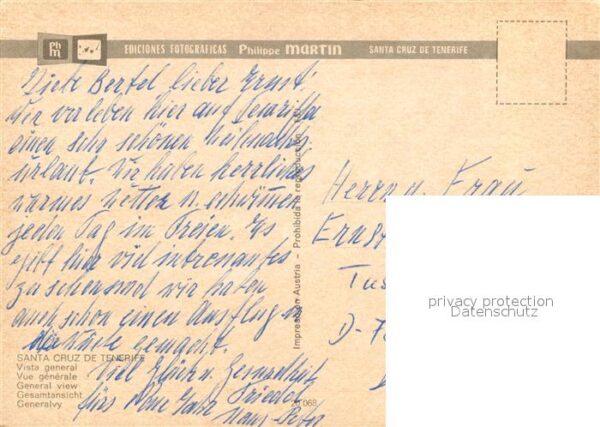 Ph m
EDICIONES FOTOGRAFICAS Philippe MARTIN SANTA CRUZ DE TENERIFE
Liebe Bertel, lieber Ernst!
Wir verleben hier auf Teneriffa
einen sehr schönen Weihnachts-
urlaub. Wir haben herrliches
warmes Wetter u. schwimmen
jeden Tag im Freien. Es
gibt hier viel interessantes
zu sehen und wir haben
auch schon einen Ausflug in
gemacht.
Viel Glück u. Gesundheit
fürs Neue Jahr Friedel
Hans-Peter
SANTA CRUZ DE TENERIFE
Vista general
Vue générale
General view
Gesamtansicht
Generalvy
068
Impression Austria - Prohibida la reproducción
Herrn u. Frau
Ernst
Tus
D-7
privacy protection
Datenschutz